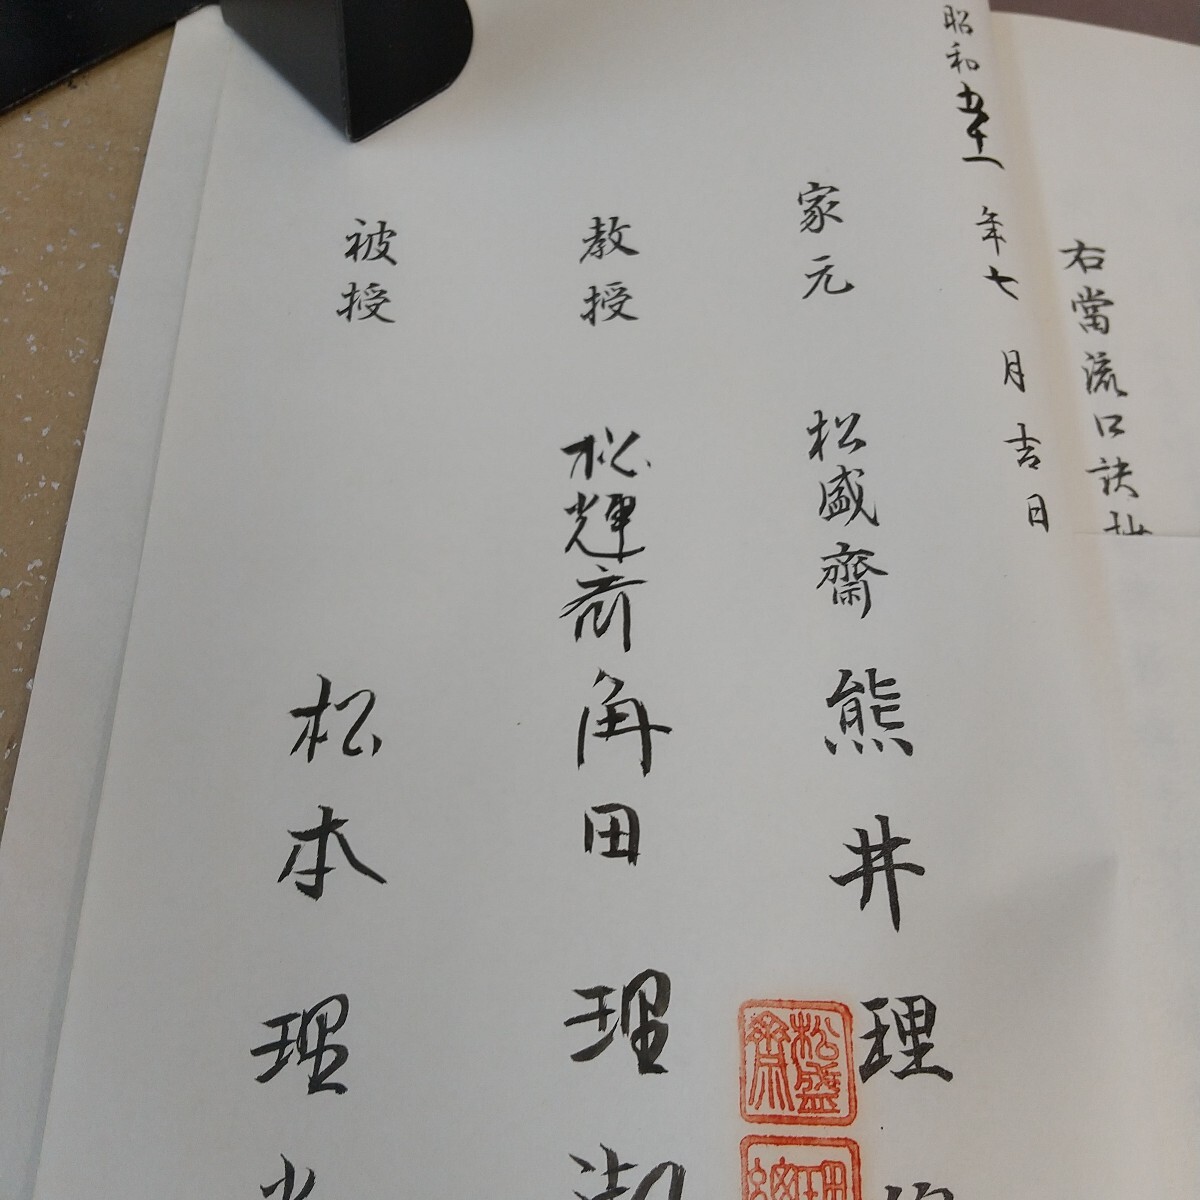 右當流口訣
昭和五十一年七月吉日
家元 松盛齋 熊井理
教授 松輝斎 角田理
被授 松本理
松盛
齋